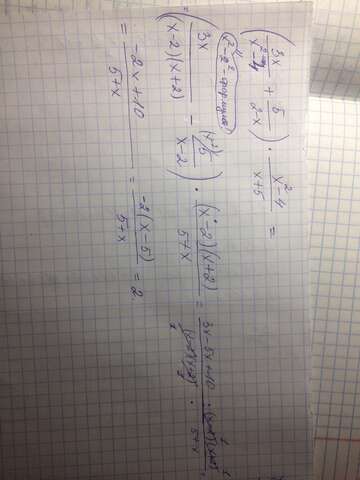 (3x/(x²-4) + 5/(2-x)) · (x²-4)/(x+5) =
(3x/((x-2)(x+2)) - 5/(x-2)) · ((x-2)(x+2))/(5+x) = (3x-5x+10)/((x-2)(x+2)) · ((x-2)(x+2))/(5+x)
= (-2x+10)/(5+x) = (-2(x-5))/(5+x) = 2